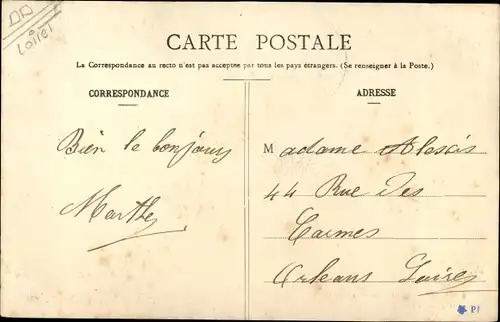 Loiret
CARTE POSTALE
La Correspondance au recto n'est pas acceptée par tous les pays étrangers. (Se renseigner à la Poste.)
CORRESPONDANCE
ADRESSE
Bien le bonjour
Marthe
Madame Alessis
44 Rue Des
Carmes
Orleans Loiret
PI